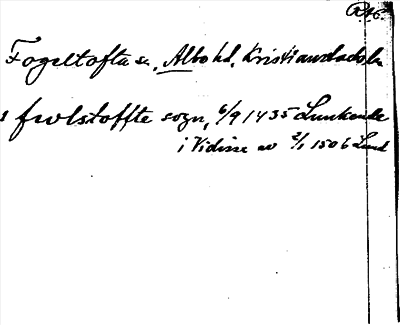 R16.
Fogeltofta sn, Albo hd, Kristianstads ln
s fwlstoffte sogn, 6/9 1435 Lunkende
i Vidisse av 2/1 1506 Lund